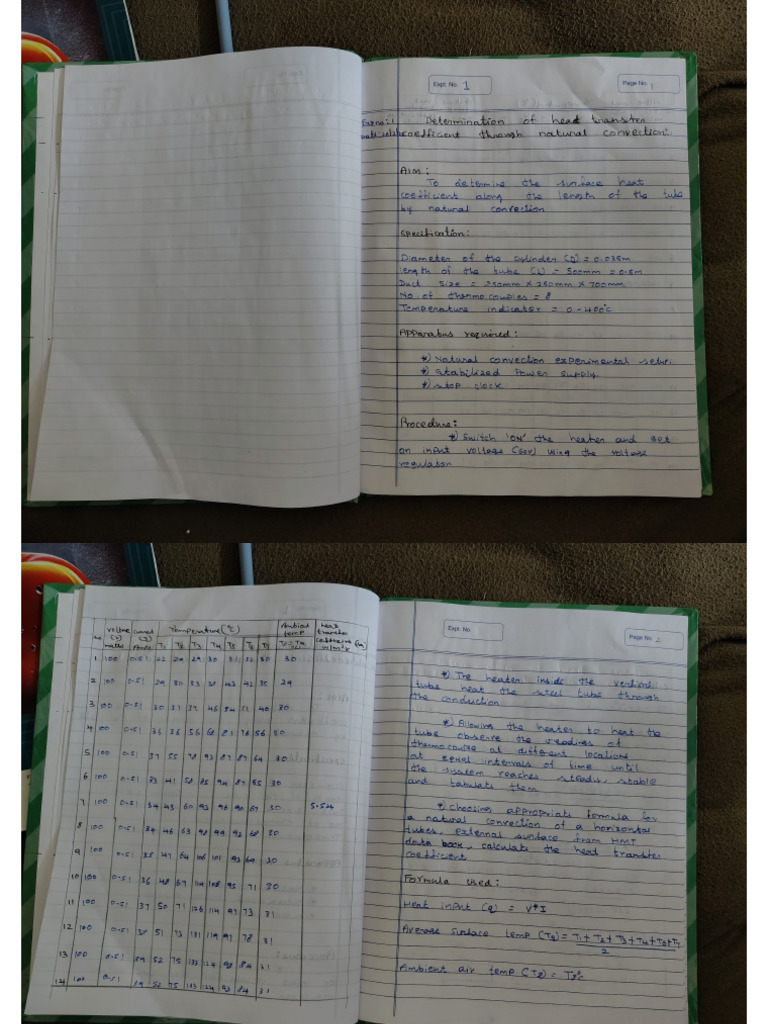 Expt. No. 1
Page No. 1
Determination of heat transfer
coefficient through natural convection:
Aim:
To determine the surface heat
coefficient along the length of the tube
by natural convection
Specification:
Diameter of the cylinder (D) = 0.035m
length of the tube (L) = 500mm = 0.5m
Duct size = 250mm x 250mm x 700mm
No of thermocouples = 8
Temperature indicator = 0-400°C
Apparatus required:
*) Natural convection experimental setup.
*) Stabilized Power supply.
*) stop clock
Procedure:
*) Switch 'ON' the heater and set
an input voltage (50V) using the voltage
regulator
voltage (V) volts
current (I) Amps
Temperature (°C)
T1 T2 T3 T4 T5 T6 T7
Ambient temp
heat transfer
1 100 0.51 30
2 100 0.51 29 30 33 38 43 42 35 29
3 100 0.51 30
4 100 0.51 56 30
5 100 0.51 37 55 78 93 87 87 64 30
6 100 0.51 30
7 100 0.51 34 43 60 93 96 90 67 30
8 100 0.51 34 46 63 98 99 92 68 30
9 100 0.51 35 47 64 106 101 93 69 30
10 100 0.51 36 48 67 114 108 95 71 30
11 100 0.51 37 50 71 126 114 97 73 31
12 100 0.51 51 73 131 119 97 78 31
13 100 0.51 39 52 75 133 124 98 84 31
14 100 0.51 39 52 75 133 124 93 84 31
Expt. No.
Page No. 2
*) The heater inside the vertical
tube heat the steel tube through
the conduction
*) Allowing the heater to heat the
tube observe the readings of
thermocouple at different locations
at equal intervals of time until
the system reaches steady, stable
and tabulate them
*) Choosing appropriate formula for
a natural convection of a horizontal
tubes, external surface from HMT
data book, calculate the heat transfer
coefficient
Formula used:
Heat input (q) = V*I
Average surface temp (Ts) = T1+T2+T3+T4+T5+T6+T7
Ambient air temp